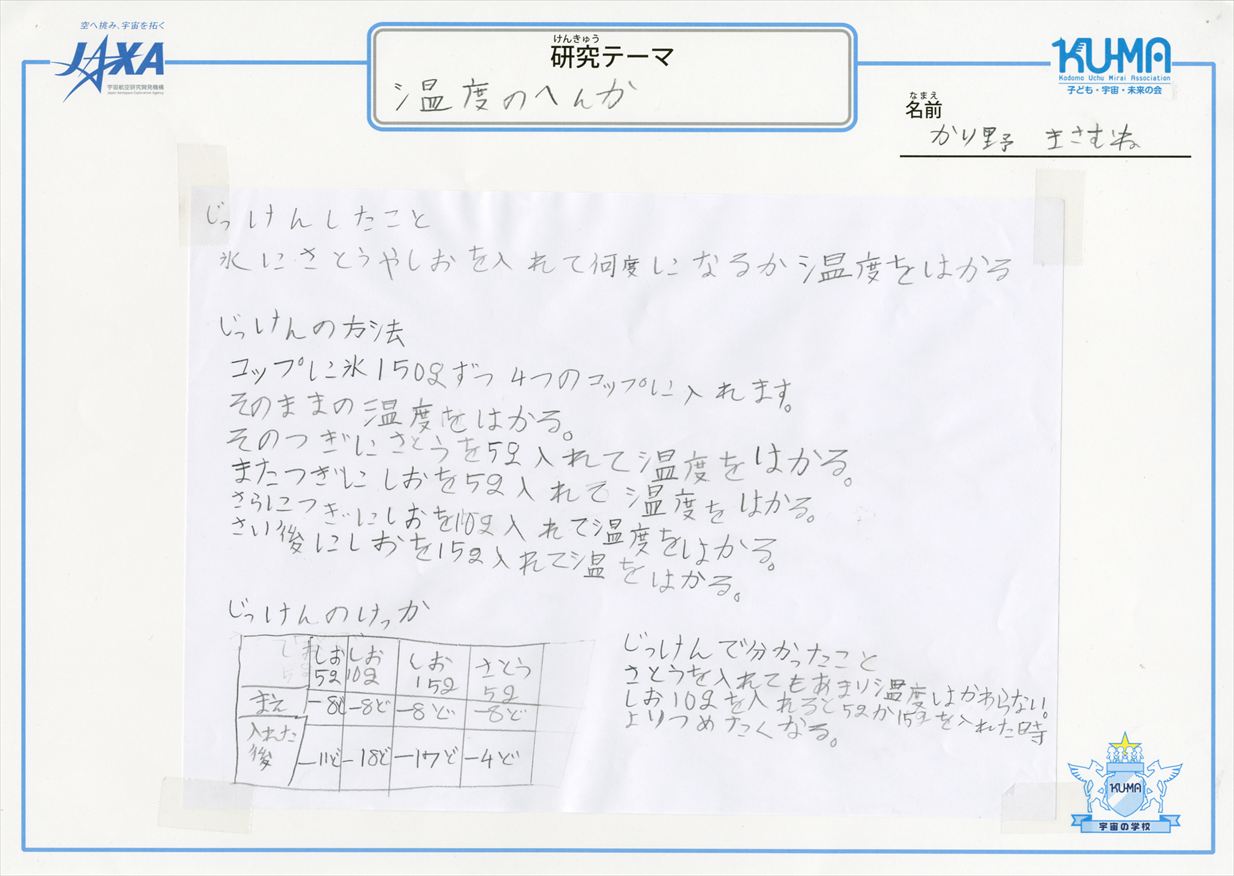 空へ挑み、宇宙を拓く
JAXA
宇宙航空研究開発機構
Japan Aerospace Exploration Agency
けんきゅう
研究テーマ
温度のへんか
KU-MA
Kodomo Uchu Mirai Association
子ども・宇宙・未来の会
なまえ
名前
かり野 まさむね
じっけんしたこと
氷にさとうやしおを入れて何度になるか温度をはかる
じっけんの方法
コップに氷150gずつ4つのコップに入れます。
そのままの温度をはかる。
そのつぎにさとうを5g入れて温度をはかる。
またつぎにしおを5g入れて温度をはかる。
さらにつぎにしおを10g入れて温度をはかる。
さい後にしおを15g入れて温をはかる。
じっけんのけっか
しお5g しお10g しお15g さとう5g
まえ -8ど -8ど -8ど -8ど
入れた後 -11ど -18ど -17ど -4ど
じっけんで分かったこと
さとうを入れてもあまり温度はかわらない。
しお10gを入れると5gか15gを入れた時
よりつめたくなる。
KU-MA
宇宙の学校